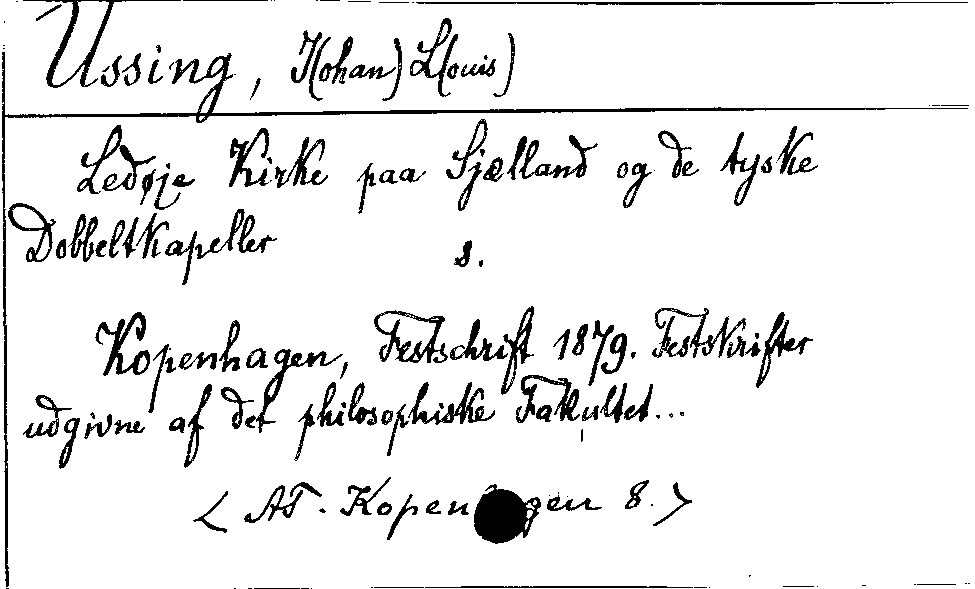 Ussing, J(ohan) L(ouis)
Ledøje Kirke paa Sjælland og de tyske
Dobbeltkapeller s.
Kopenhagen, Festschrift 1879. Festskrifter
udgivne af det philosophiske Fakultet...
< AT. Kopenhagen 8. >